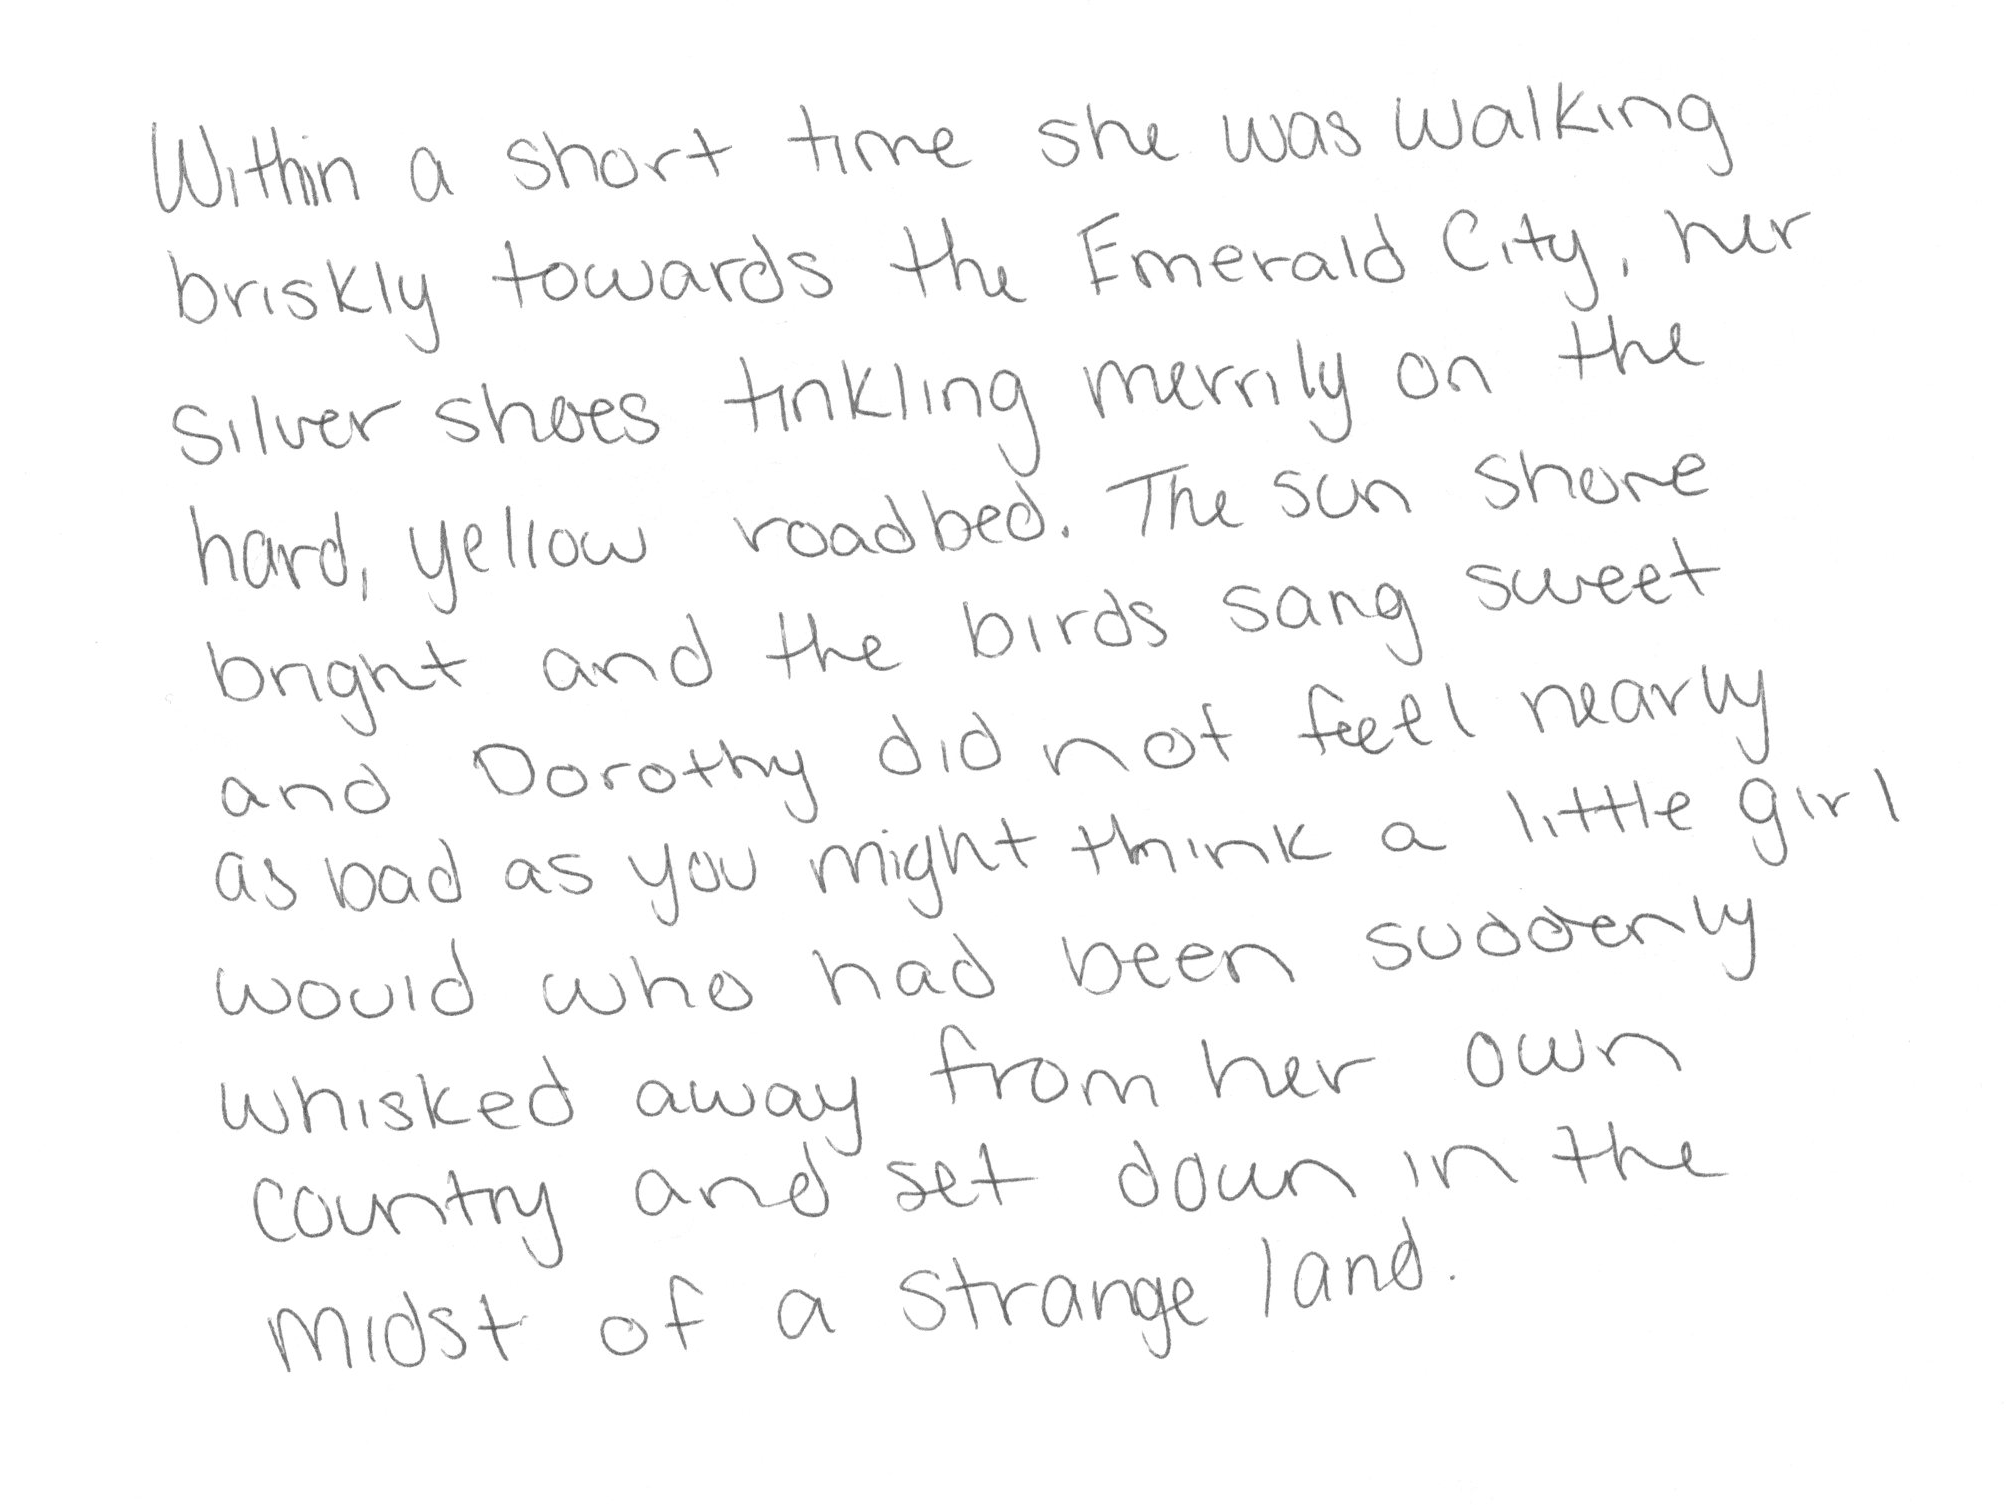 Within a short time she was walking
briskly towards the Emerald City, her
Silver shoes tinkling merrily on the
hard, yellow roadbed. The sun shone
bright and the birds sang sweet
and Dorothy did not feel nearly
as bad as you might think a little girl
would who had been suddenly
whisked away from her own
country and set down in the
midst of a strange land.